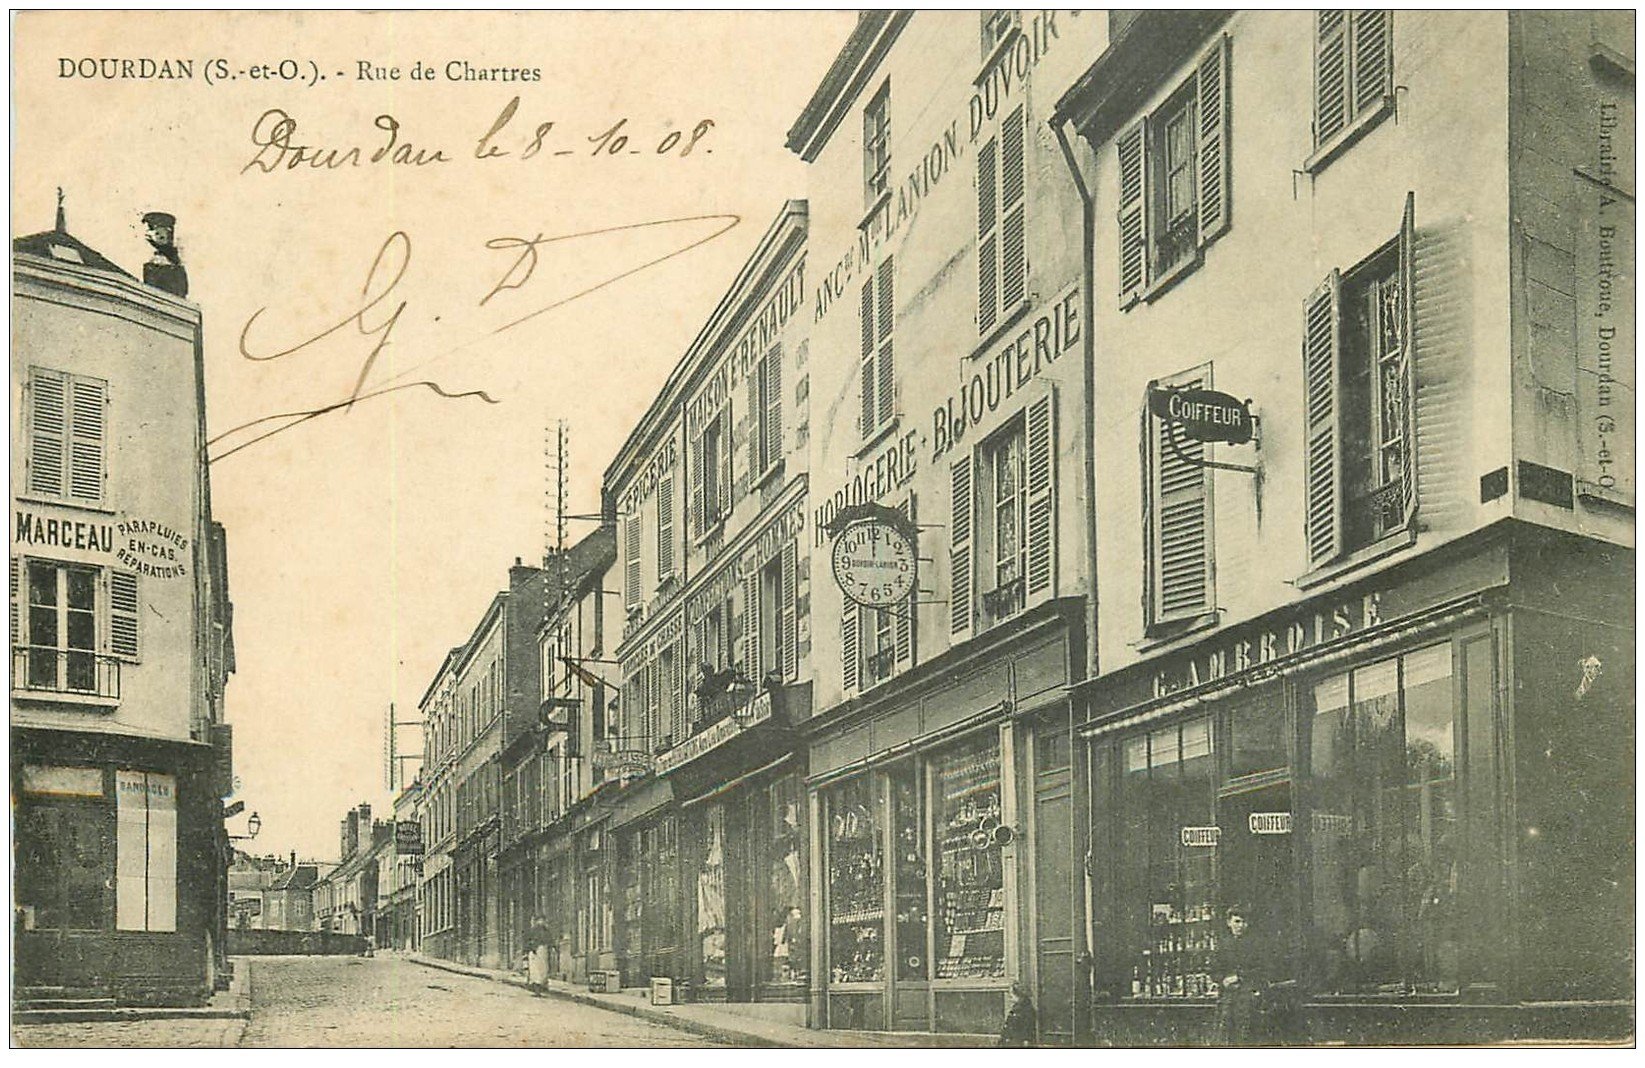 DOURDAN (S.-et-O.). - Rue de Chartres
Dourdan le 8-10-08.
G. D
MARCEAU
PARAPLUIES
EN-CAS
RÉPARATIONS
BANDAGES
ÉPICERIE
MAISON E. RENAULT
HOMMES
ANC.NE M.ON LANION, DUVOIR
HORLOGERIE - BIJOUTERIE
12 1 2 3 4 5 6 7 8 9 10 11
COIFFEUR
G. AMBROISE
COIFFEUR
COIFFEUR
Librairie A. Boutroue, Dourdan (S.-et-O